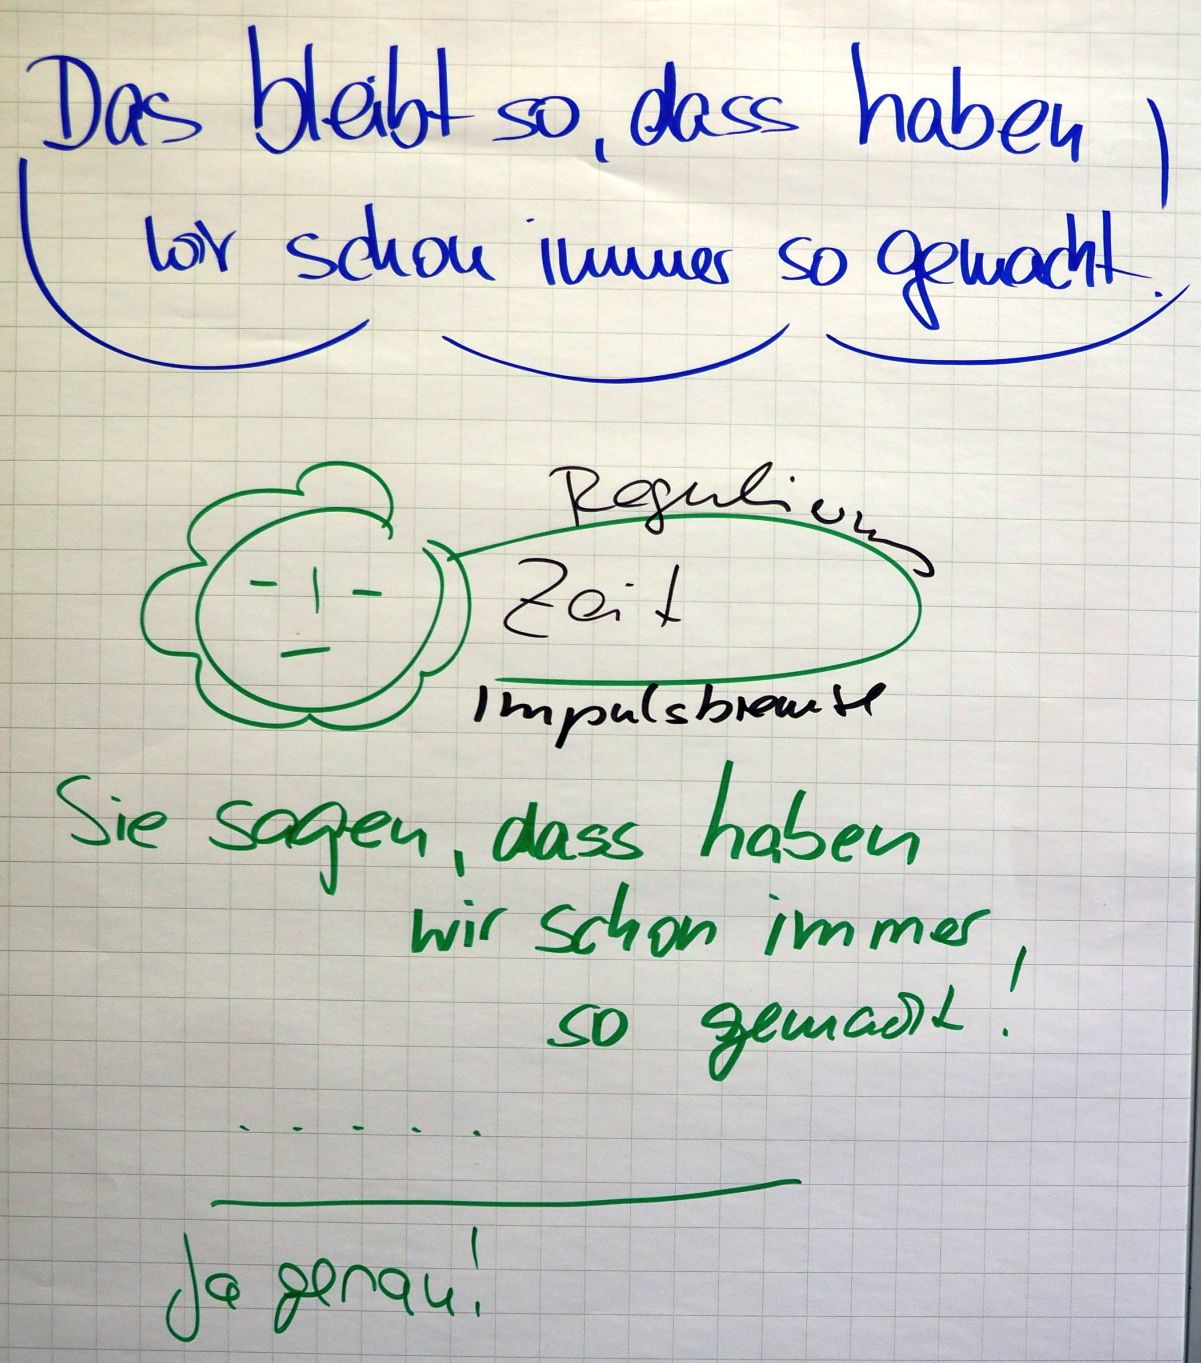 Das bleibt so, dass haben
wir schon immer so gemacht.
Regulierung
Zeit
Impulsbremse
Sie sagen, dass haben
wir schon immer
so gemacht!
.....
Ja genau!